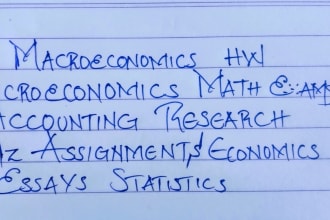 MACROECONOMICS HW
CROECONOMICS MATH EXAM
ACCOUNTING RESEARCH
ASSIGNMENTS ECONOMICS
ESSAYS STATISTICS